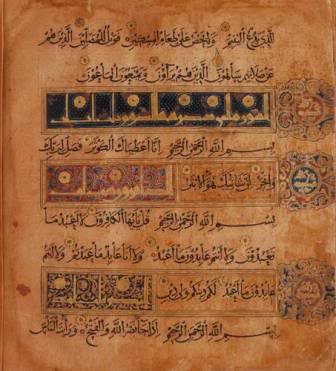 الذي يدع اليتيم ولا يحض على طعام المسكين فويل للمصلين الذين هم
عن صلاتهم ساهون الذين هم يراؤن ويمنعون الماعون
بسم الله الرحمن الرحيم انا اعطيناك الكوثر فصل لربك
وانحر ان شانئك هو الابتر
بسم الله الرحمن الرحيم قل يا ايها الكافرون لا اعبد ما
تعبدون ولا انتم عابدون ما اعبد ولا انا عابد ما عبدتم ولا انتم
عابدون ما اعبد لكم دينكم ولي دين
بسم الله الرحمن الرحيم اذا جاء نصر الله والفتح ورايت الناس